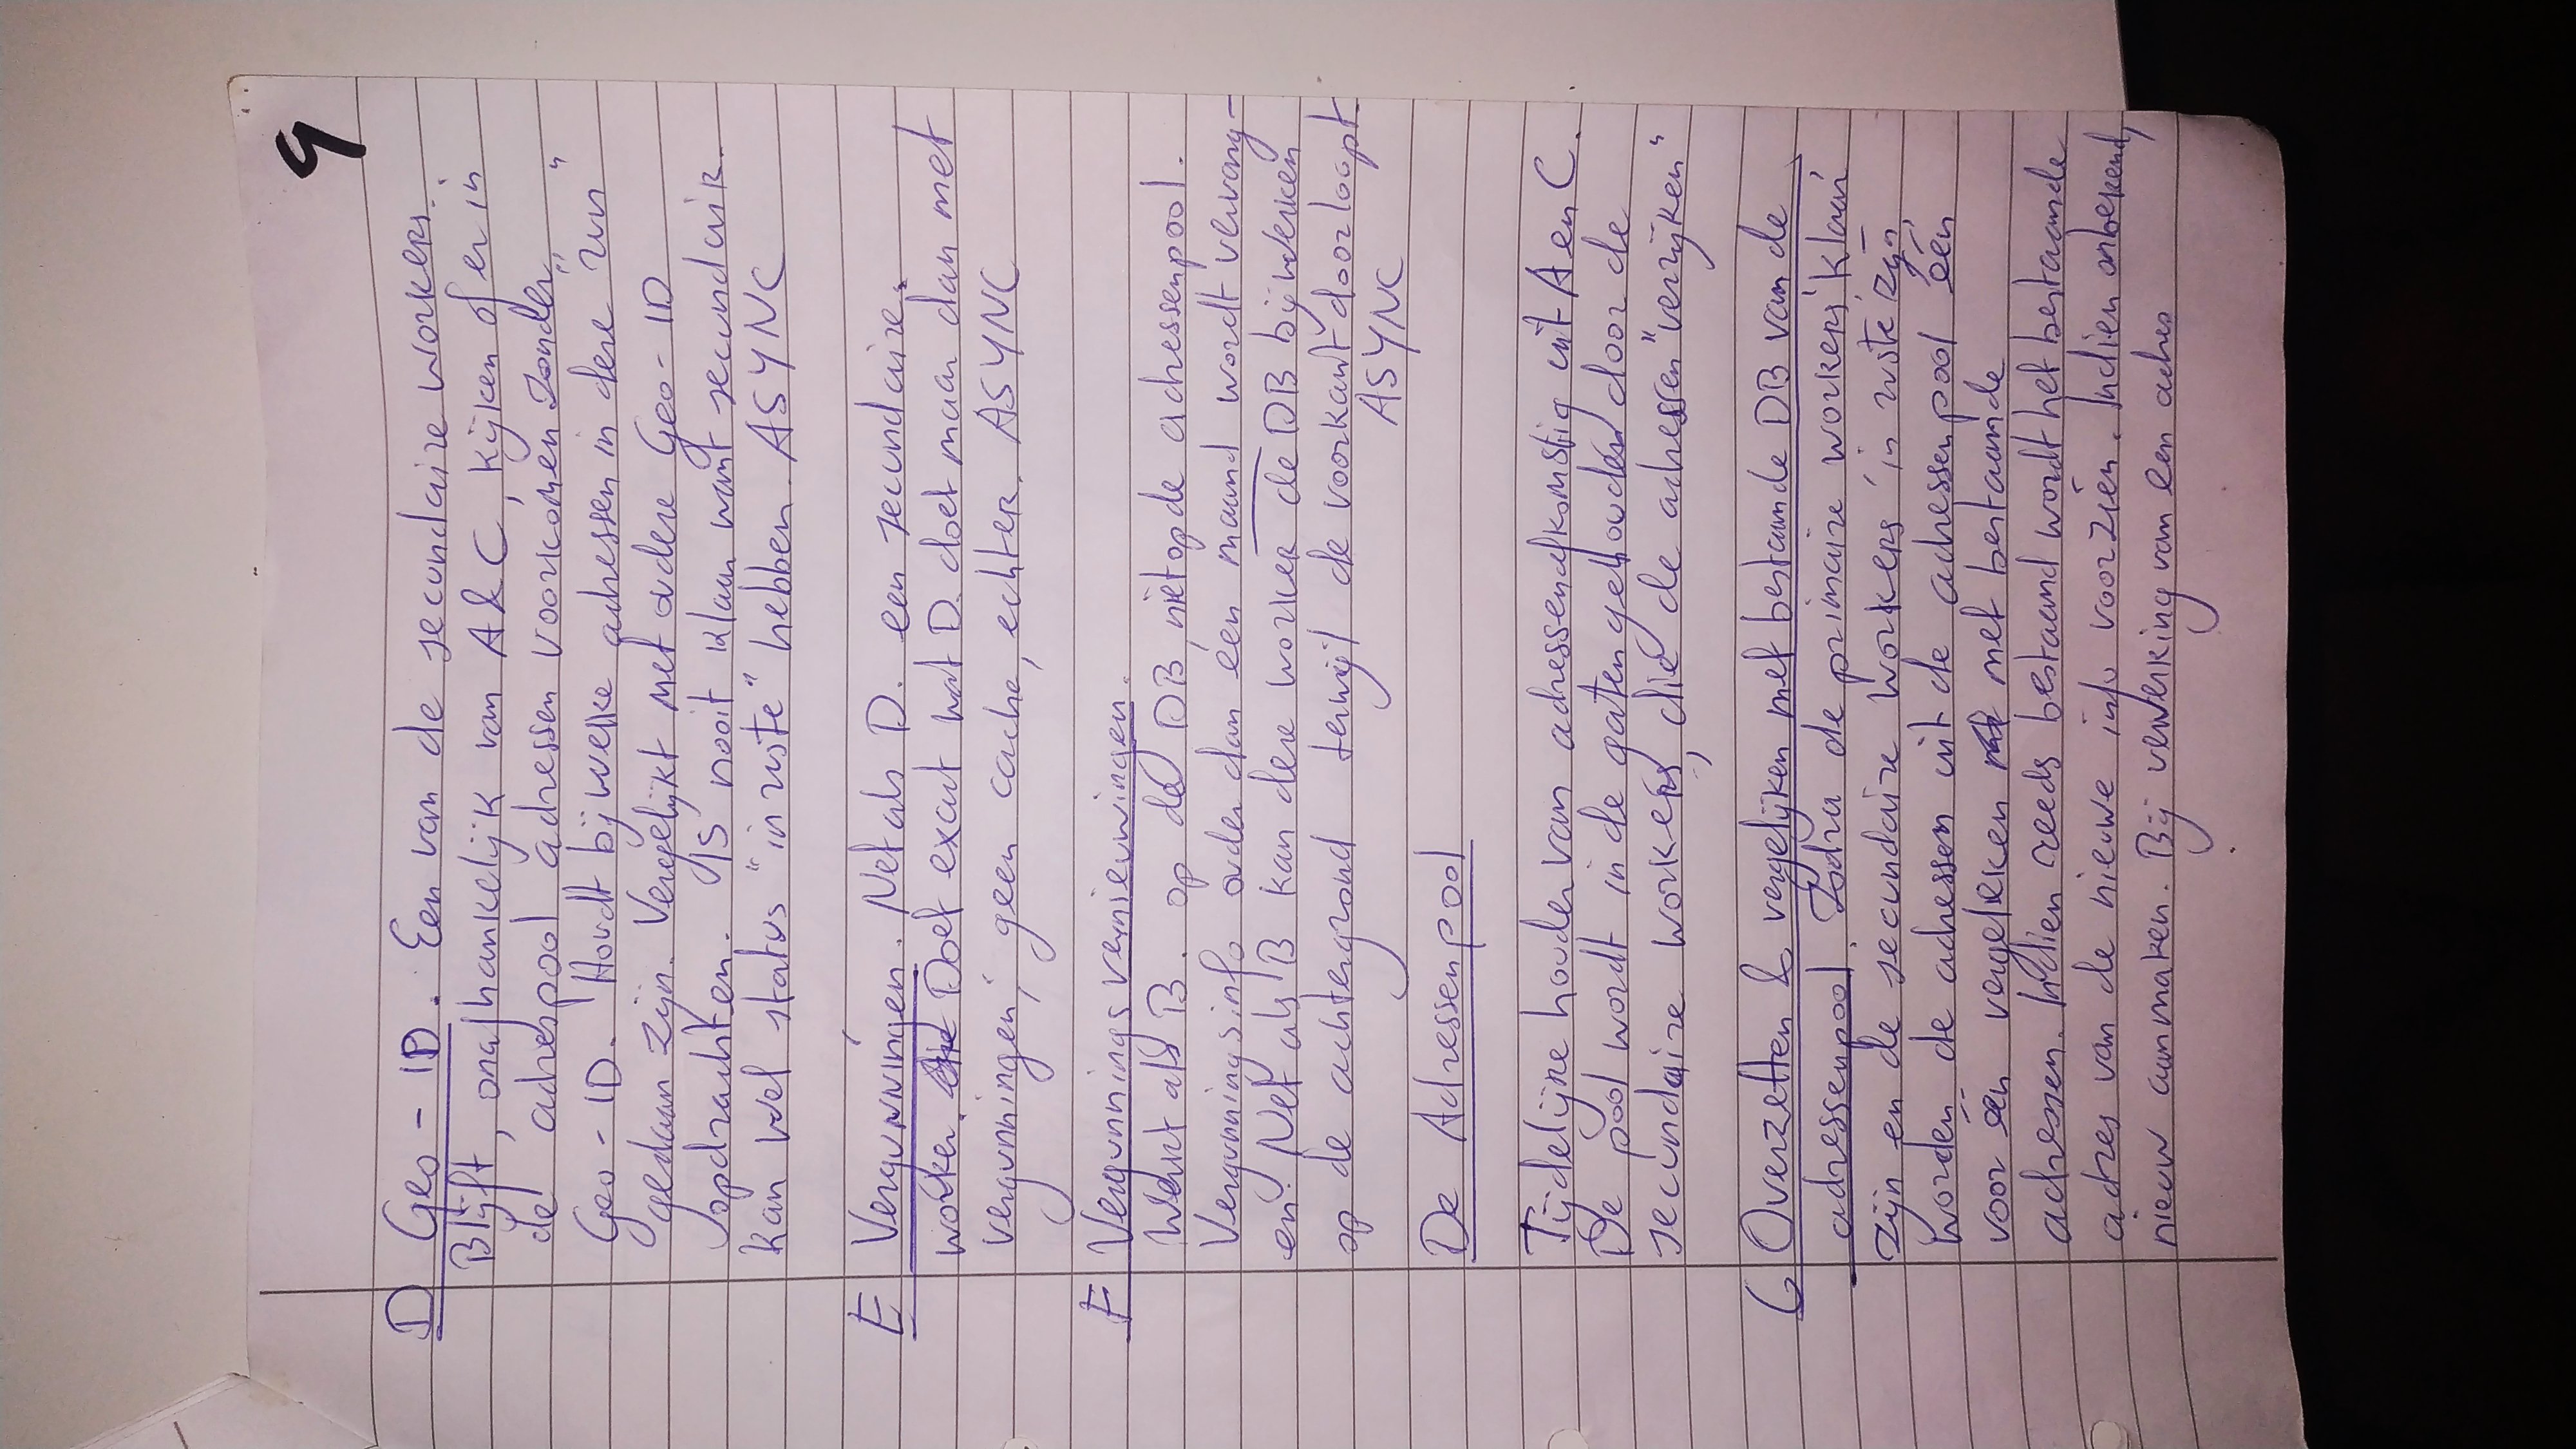 9
D Geo - ID. Een van de secundaire workers.
Blijft, onafhankelijk van A & C, kijken of er in
de adrespool adressen voorkomen zonder
Geo - ID. Houdt bij welke adressen in deze "run"
gedaan zijn. Vergelijkt met oudere Geo - ID
opdrachten. IS nooit klaar want secundair.
Kan wel status "in ruste" hebben. ASYNC
E Vergunningen. Net als D. een secundaire
worker. Doet exact wat D. doet maar dan met
vergunningen; geen cache, echter. ASYNC
F Vergunningsvernieuwingen.
Werkt als B. op de DB, niet op de adressenpool.
Vergunningsinfo ouder dan één maand wordt vervang-
en. Net als B kan deze worker de DB bijwerken
op de achtergrond terwijl de voorkant doorloopt.
ASYNC
De Adressenpool
Tijdelijke houder van adressen afkomstig uit A en C.
De pool wordt in de gaten gehouden door de
secundaire workers, die de adressen "verrijken"
G Overzetten & vergelijken met bestaande DB van de
adressenpool. Zodra de primaire workers 'klaar'
zijn en de secundaire workers 'in ruste' zijn,
worden de adressen uit de adressenpool één
voor één vergeleken met bestaande
adressen. Indien reeds bestaand wordt het bestaande
adres van de nieuwe info voorzien. Indien onbekend,
nieuw aanmaken. Bij verwerking van een adres